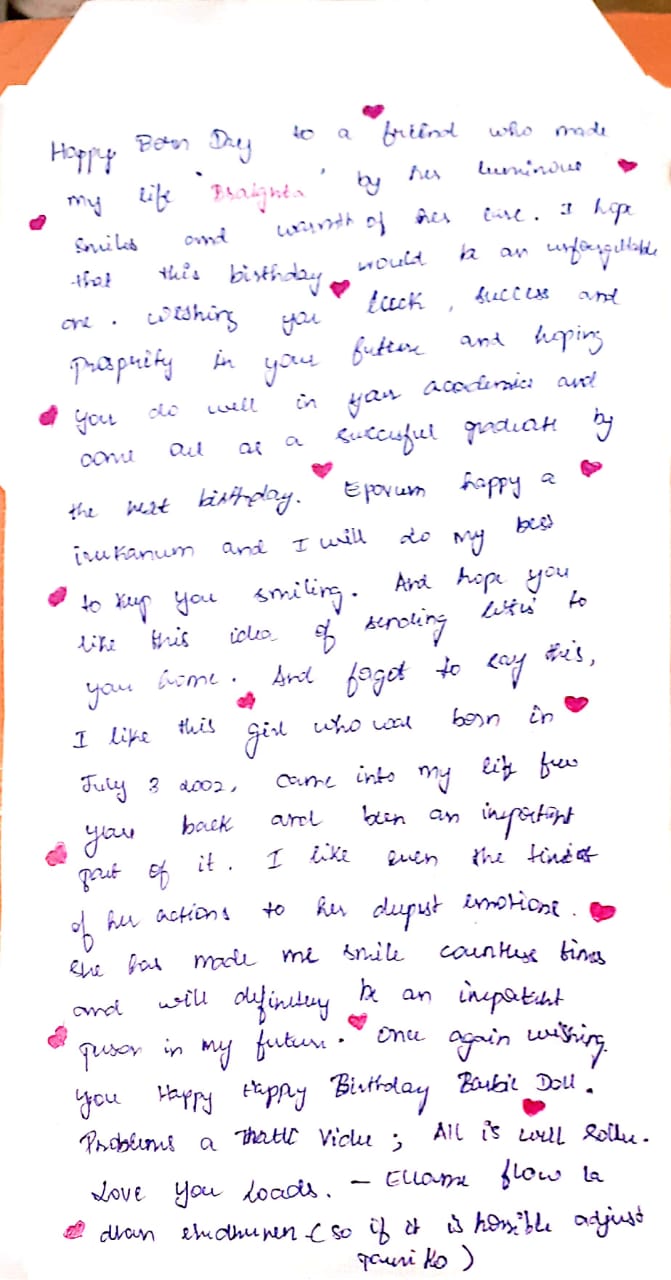 Happy Born Day to a friend who made
my life 'Braighter' by her luminous
smiles and warmth of her care. I hope
that this birthday would be an unforgettable
one. Wishing you luck, success and
prosperity in your future and hoping
you do well in your academics and
come out as a successful graduate by
the next birthday. Eporum happy a
irukanum and I will do my best
to keep you smiling. And hope you
like this idea of sending letter to
you home. And forgot to say this,
I like this girl who was born in
July 3 2002, came into my life few
years back and been an important
part of it. I like even the tiniest
of her actions to her deepest emotions.
She has made me smile countless times
and will definitely be an important
person in my future. Once again wishing
you Happy Happy Birthday Barbie Doll.
Problems a Thatti Vidu ; All is well Sollu.
Love you loads. – Ellame flow la
dhan eludhunen (so if it is horrible adjust
panni ko)